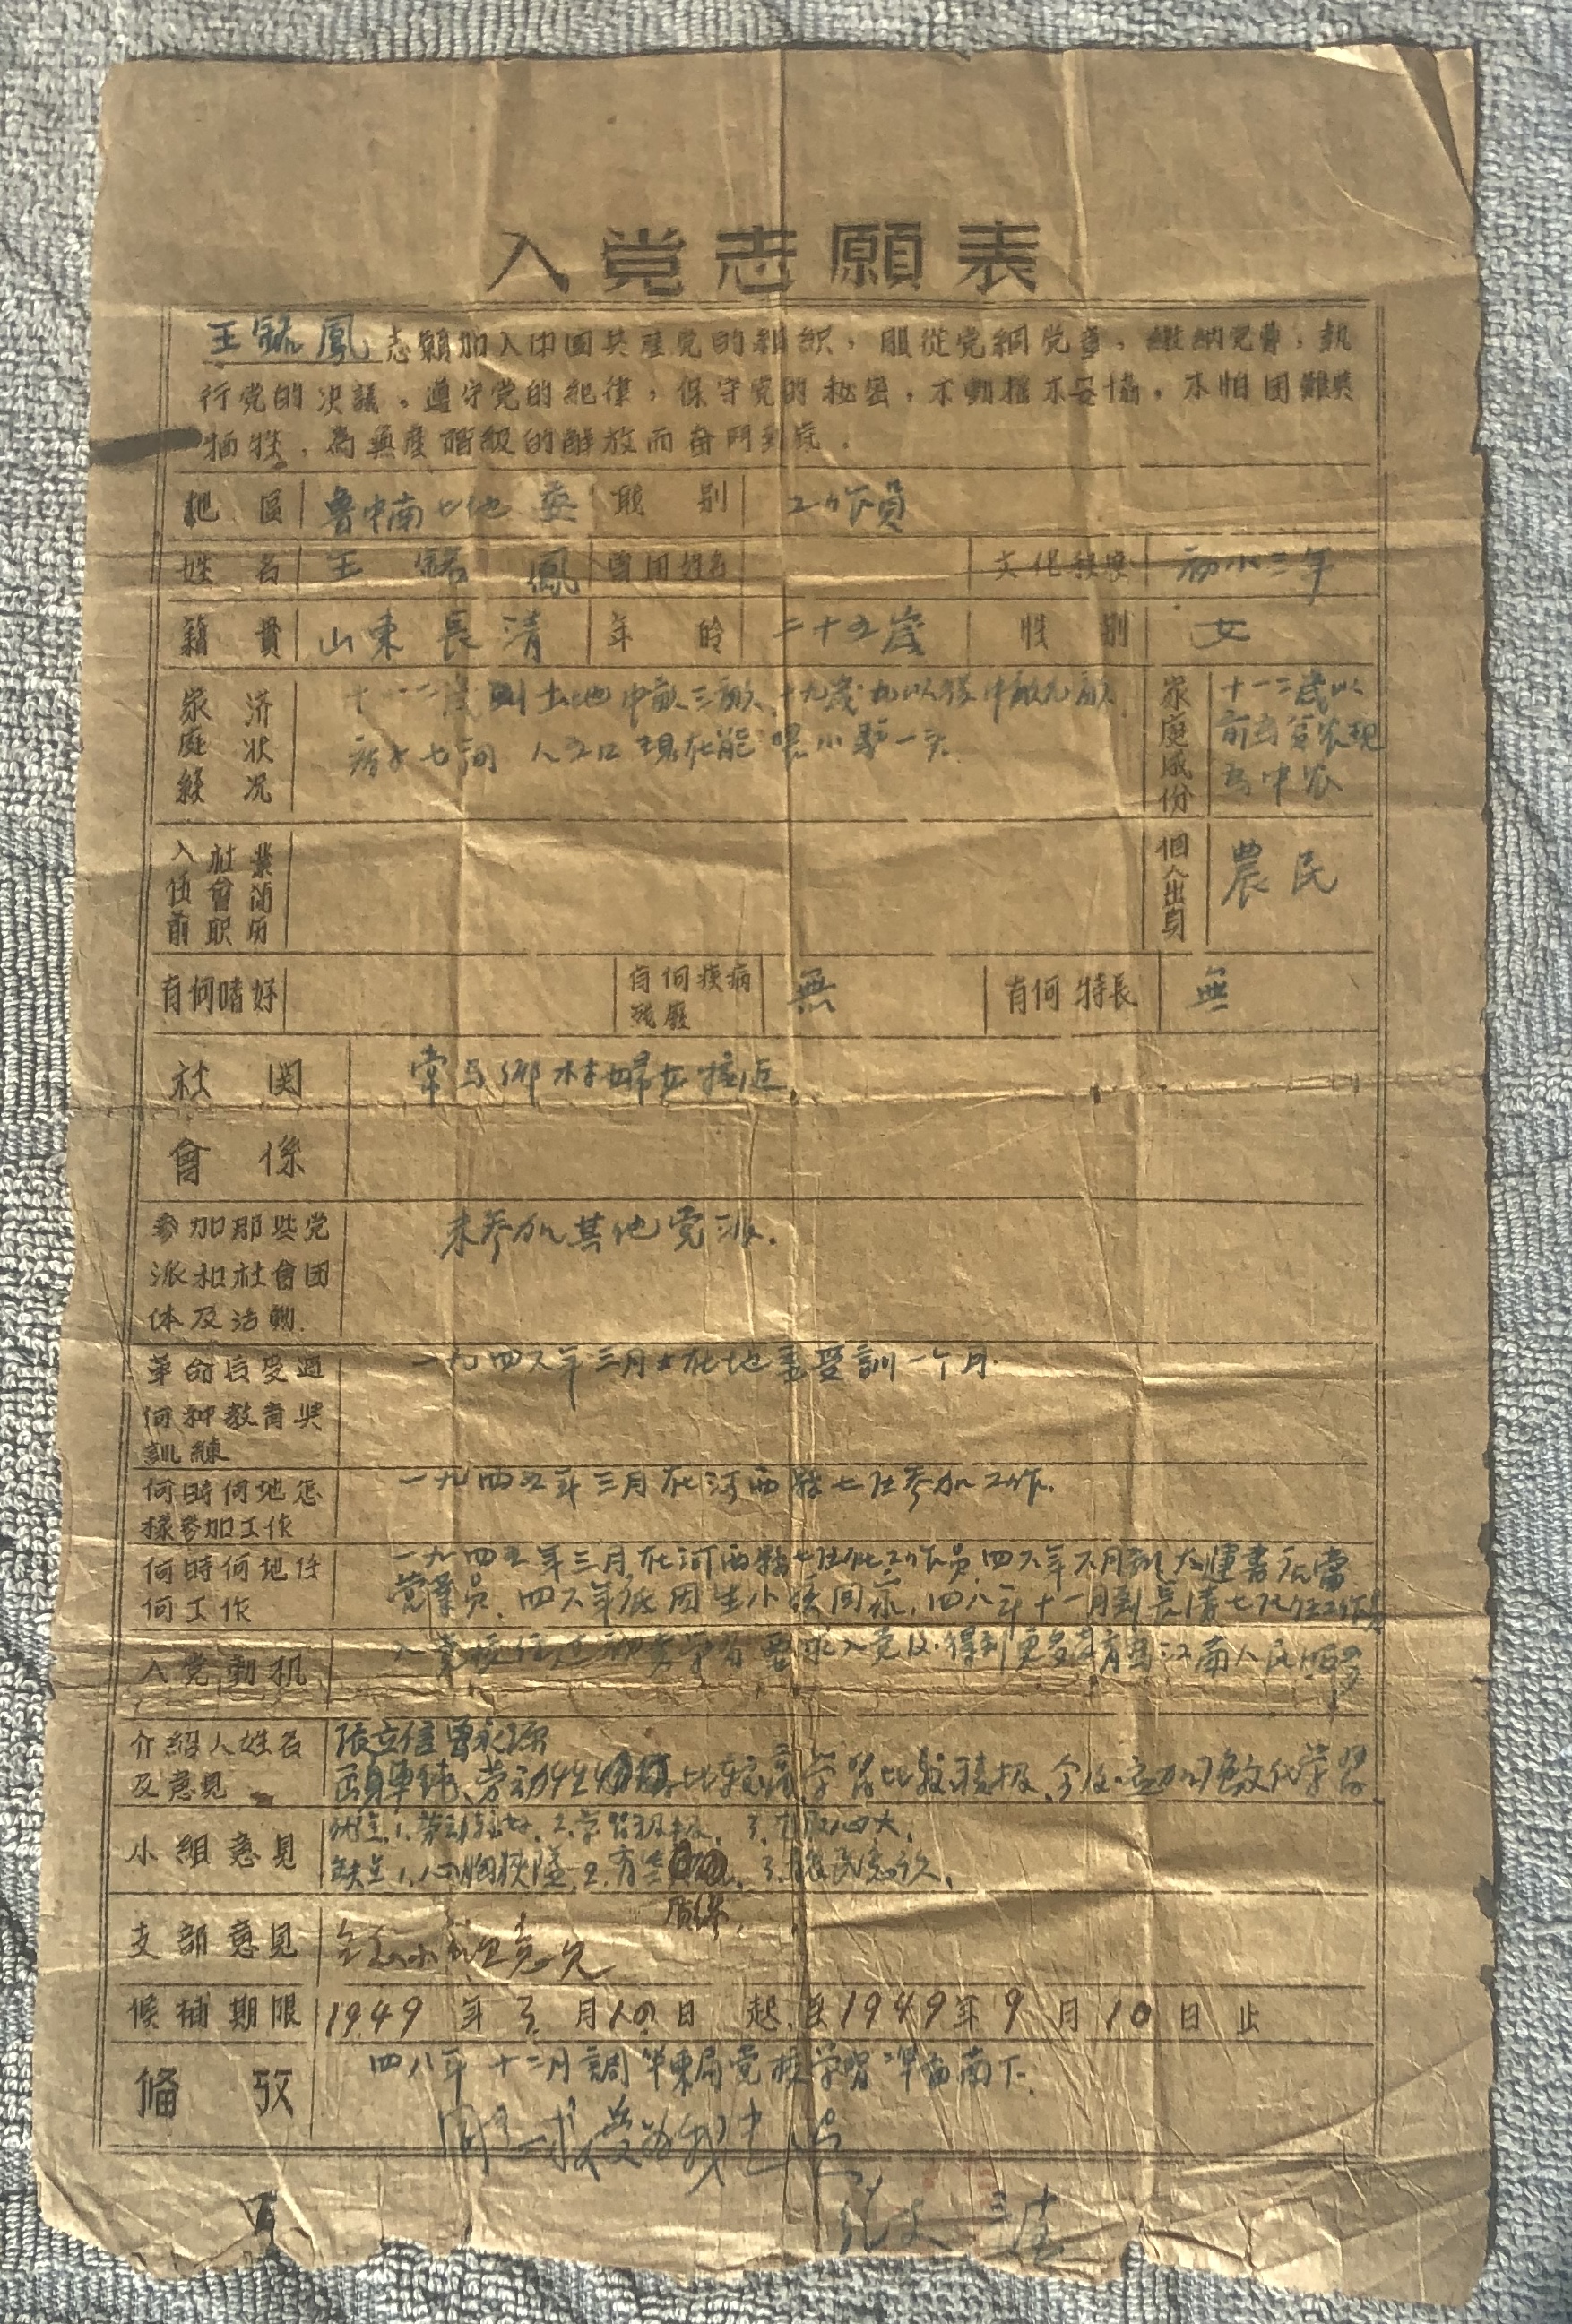 入党志願表
王銘鳳 志願加入中国共產党的組織，服從党綱党章，繳納党費，執
行党的决議。遵守党的紀律，保守党的秘密，不動摇不妥協，不怕困難與
牺牲，為無產階級的解放而奋鬥到底．
地區 魯中南七地委 職别 工作員
姓名 王銘鳳 曾用姓名 文化程度 初小三年
籍貫 山東長清 年龄 二十五歲 性别 女
家庭經济状况 十一二歲 土地中畝三畝、十九歲 以後中畝九畝 家庭成份 十一二歲以
房子七间 人五口 現在能喂小驢一头. 前为貧农現
为中农
入伍前社會职業简历 個人出身 農民
有何嗜好 有何疾病残廢 無 有何特長 無
社會関係 常与鄉村婦女接近.
参加那些党派和社會团体及活動. 未参加其他党派.
革命后受過何种教育與訓練 一九四六年三月 在地委受訓一个月.
何時何地怎樣参加工作 一九四五年三月在河西縣七区参加工作.
何時何地任何工作 一九四五年三月在河西縣七区 工作员.四六年六月到大運書店當
營業员.四六年底因生小孩回家.四八年十一月到長清七区任工作员
入党動机 要求入党 得到更多教育为江南人民服務
介紹人姓名及意見 張立信 曾永源
單純、劳动 比較高 学習比較積極、今后 学習
小組意見 优点.1.劳动較好.2.学習积极.
缺点1.心胸狭隘.2.有些 3.
支部意見 同意小組意见
候補期限 1949年3月10日起至1949年9月10日止
備攷 四八年十二月調華東局党校学習準備南下.